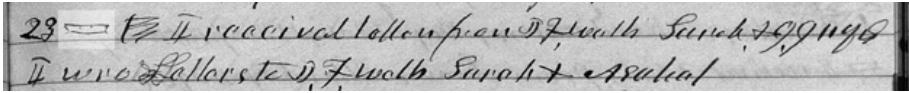 23 — II received letter from D, F, walth Sarah +
II wro Letters to D, F walth Sarah + Asahal